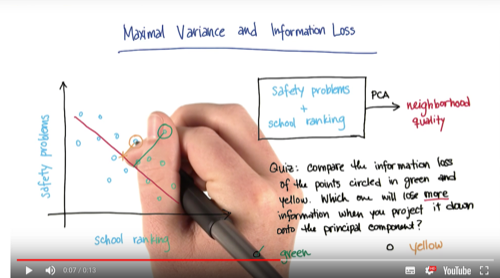 Maximal Variance and Information Loss
safety problems
+
school ranking
PCA
neighborhood
quality
safety problems
school ranking
Quiz: compare the information loss
of the points circled in green and
yellow. Which one will lose more
information when you project it down
onto the principal component?
green
yellow
0:07 / 0:13
YouTube